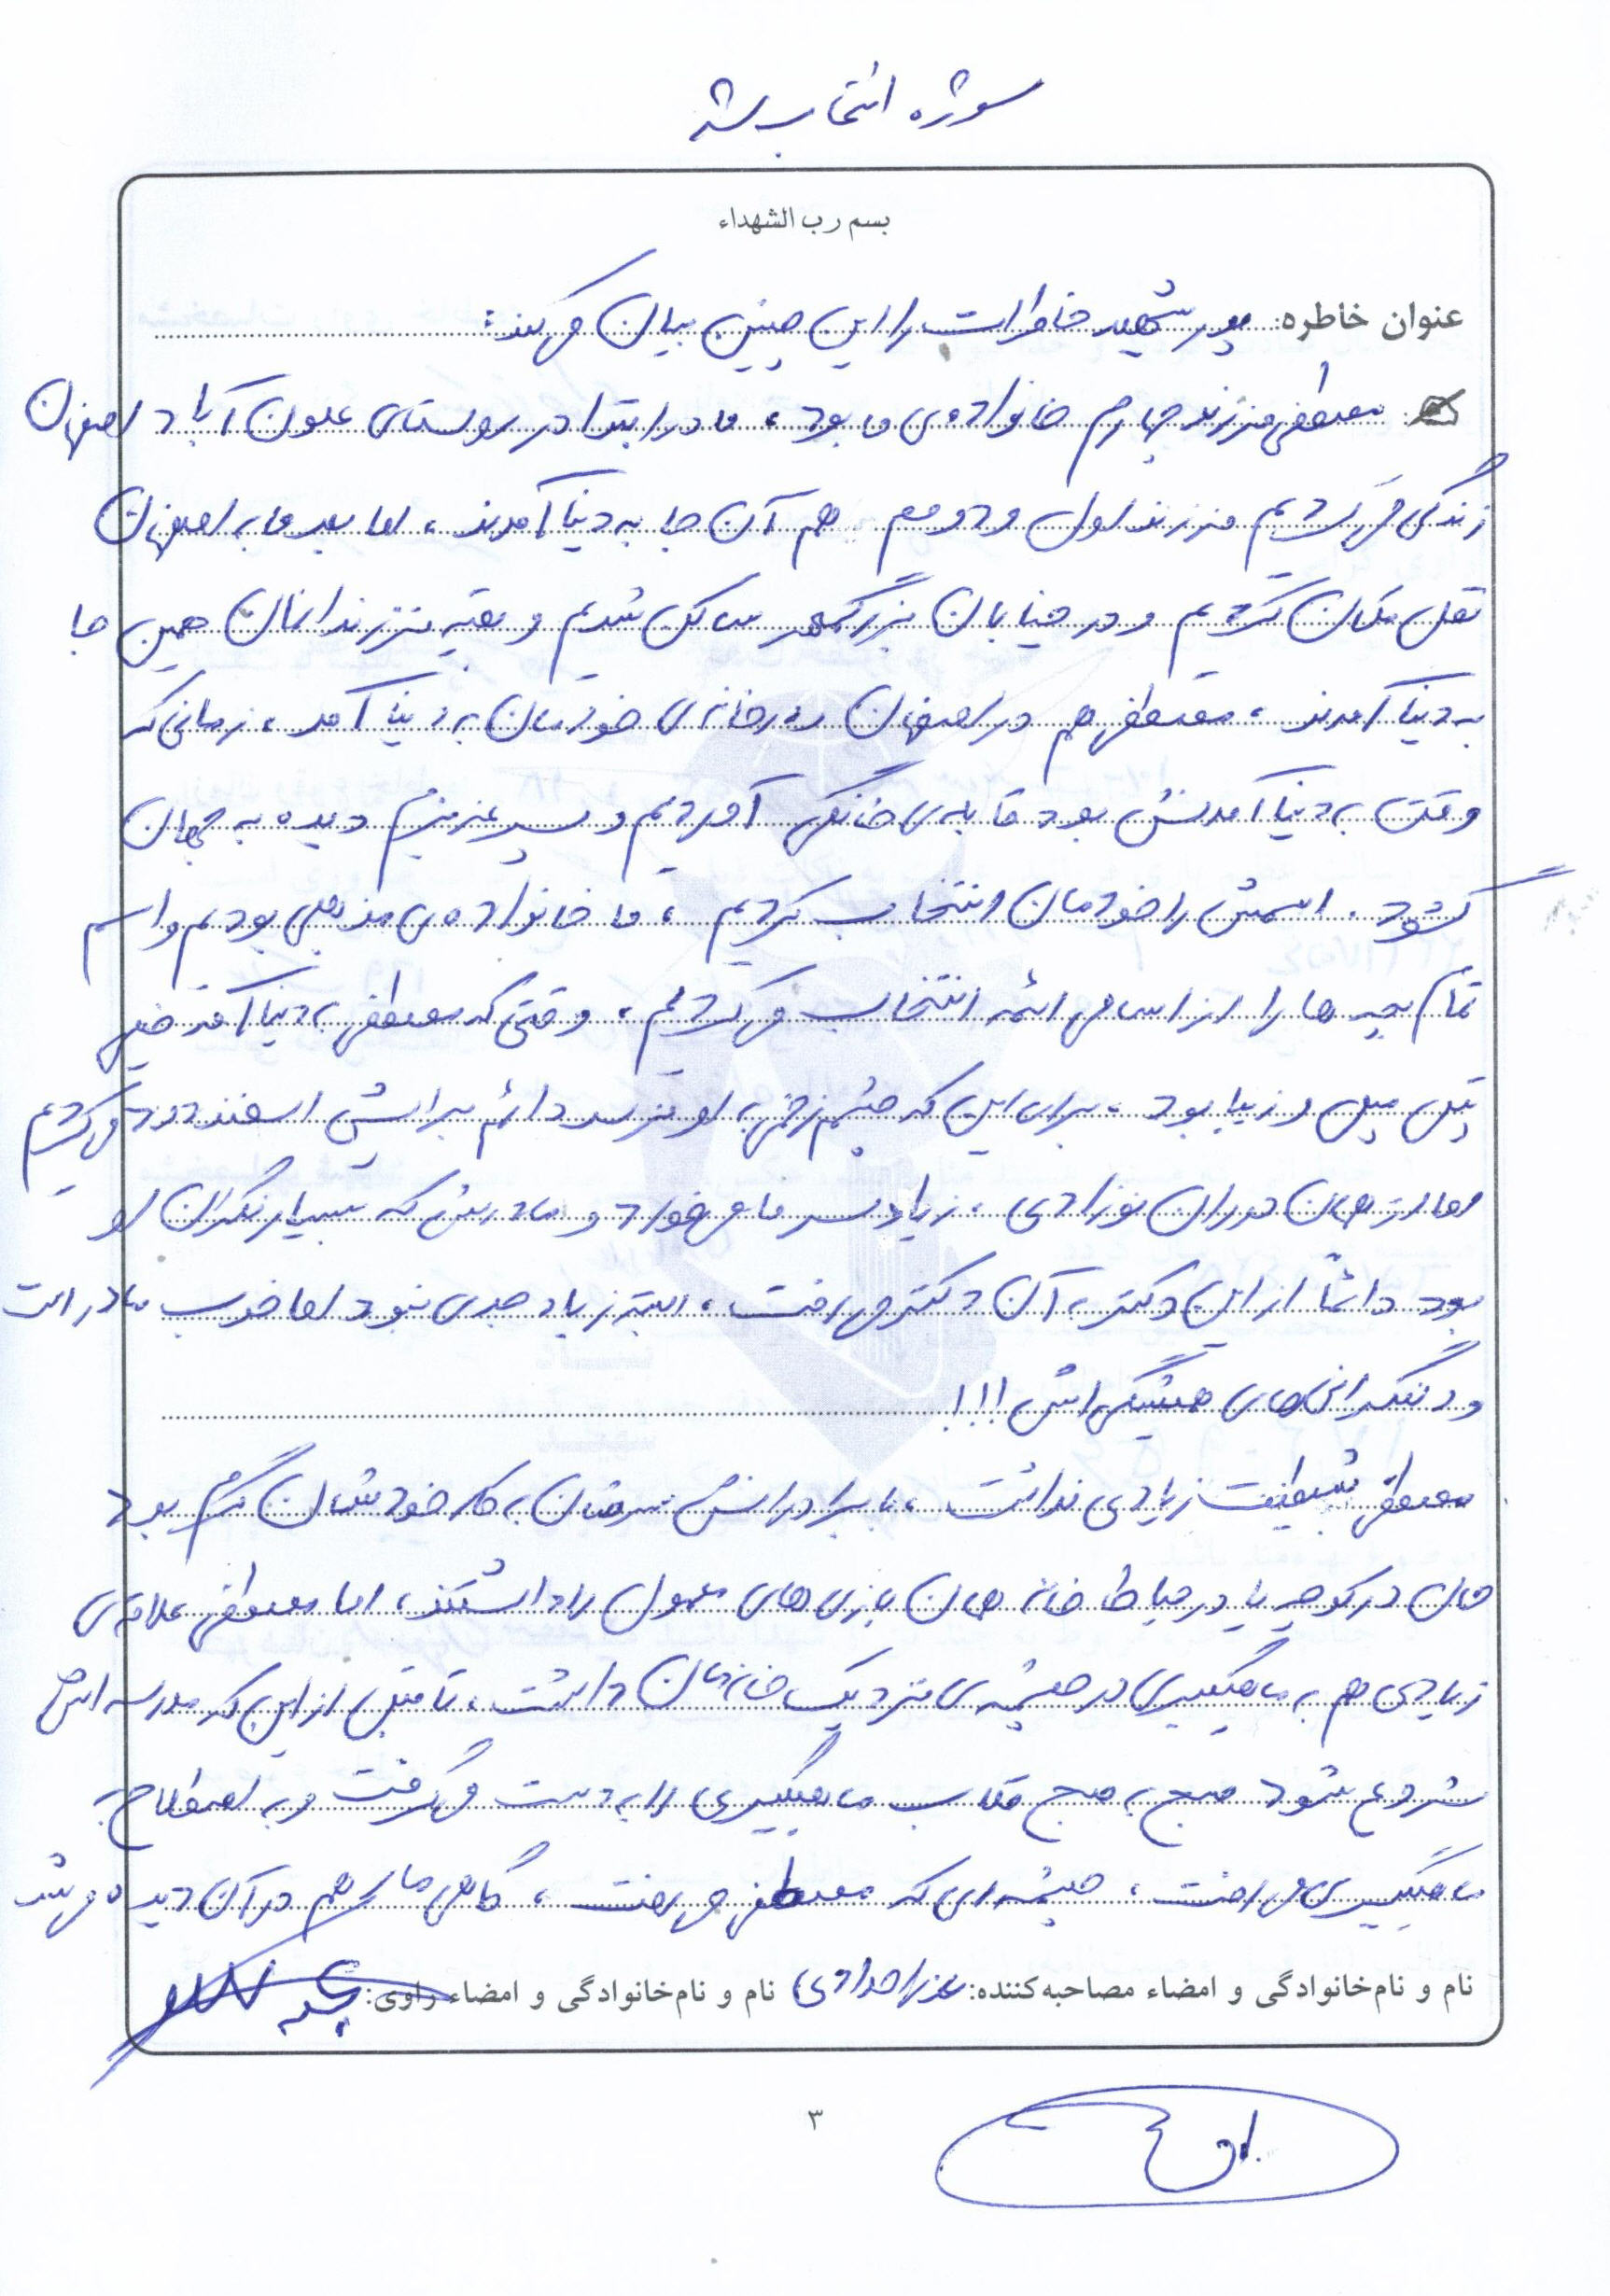 سوژه انتخاب شد
بسم رب الشهداء
عنوان خاطره: پدر شهید خاطرات را این چنین بیان می کند:
مصطفی فرزند چهارم خانواده ی ما بود، ما در ابتدا در روستای علون آباد اصفهان
زندگی می کردیم فرزند اول و دومم هم آن جا به دنیا آمدند، اما بعد ما به اصفهان
نقل مکان کردیم و در خیابان بزرگمهر ساکن شدیم و بقیه فرزندانمان همین جا
به دنیا آمدند، مصطفی هم در اصفهان در خانه ی خودمان به دنیا آمد، زمانی که
وقت به دنیا آمدنش بود قابله ی خانگی آوردیم و پسر عزیزم دیده به جهان
گشود. اسمش را خودمان انتخاب کردیم، ما خانواده ی مذهبی بودیم و اسم
تمام بچه ها را از اسامی ائمه انتخاب می کردیم، وقتی که مصطفی به دنیا آمد خیلی
تپل مپل و زیبا بود، برای این که چشم زخمی به او نرسد دائم برایش اسفند دود می کردیم
اما از همان دوران نوزادی، زیاد سرما می خورد و مادرش که بسیار نگران او
بود دائماً از این دکتر به آن دکتر می رفت، البته زیاد جدی نبود اما خوب مادر است
و نگرانی های همیشگی اش!!!
مصطفی شیطنت زیادی نداشت، با برادرانش سرشان به کار خودشان گرم بود
همان در کوچه یا در حیاط خانه همان بازی های معمول را داشتند، اما مصطفی علاقه ی
زیادی هم به ماهیگیری در چشمه ی نزدیک خانه مان داشت، تا قبل از این که مدرسه اش
شروع شود صبح به صبح قلاب ماهیگیری را به دست می گرفت و به اصطلاح به
ماهیگیری می رفت، چشمه ای که مصطفی می رفت، گاهی مار هم در آن دیده می شد
نام و نام خانوادگی و امضاء مصاحبه کننده: نام و نام خانوادگی و امضاء راوی:
۳